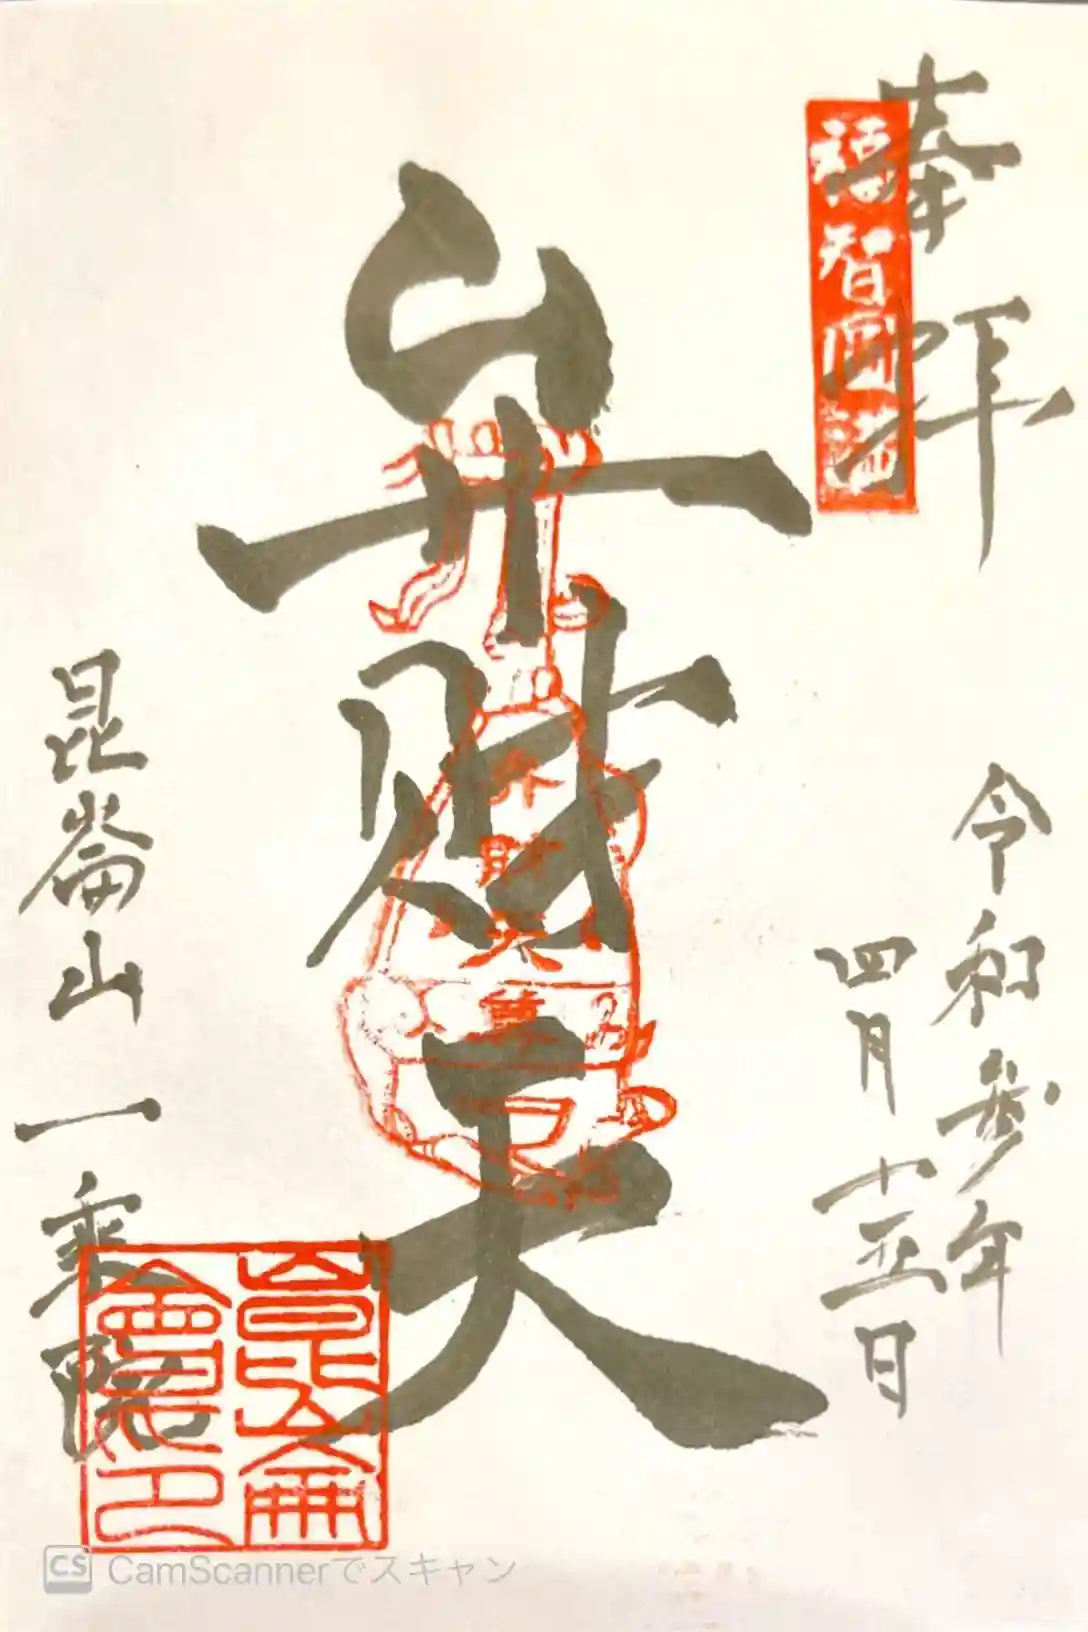 奉拝
福智圓満
令和参年
四月十五日
弁財天
弁財天尊
昆崙山 一乗院
CS CamScannerでスキャン